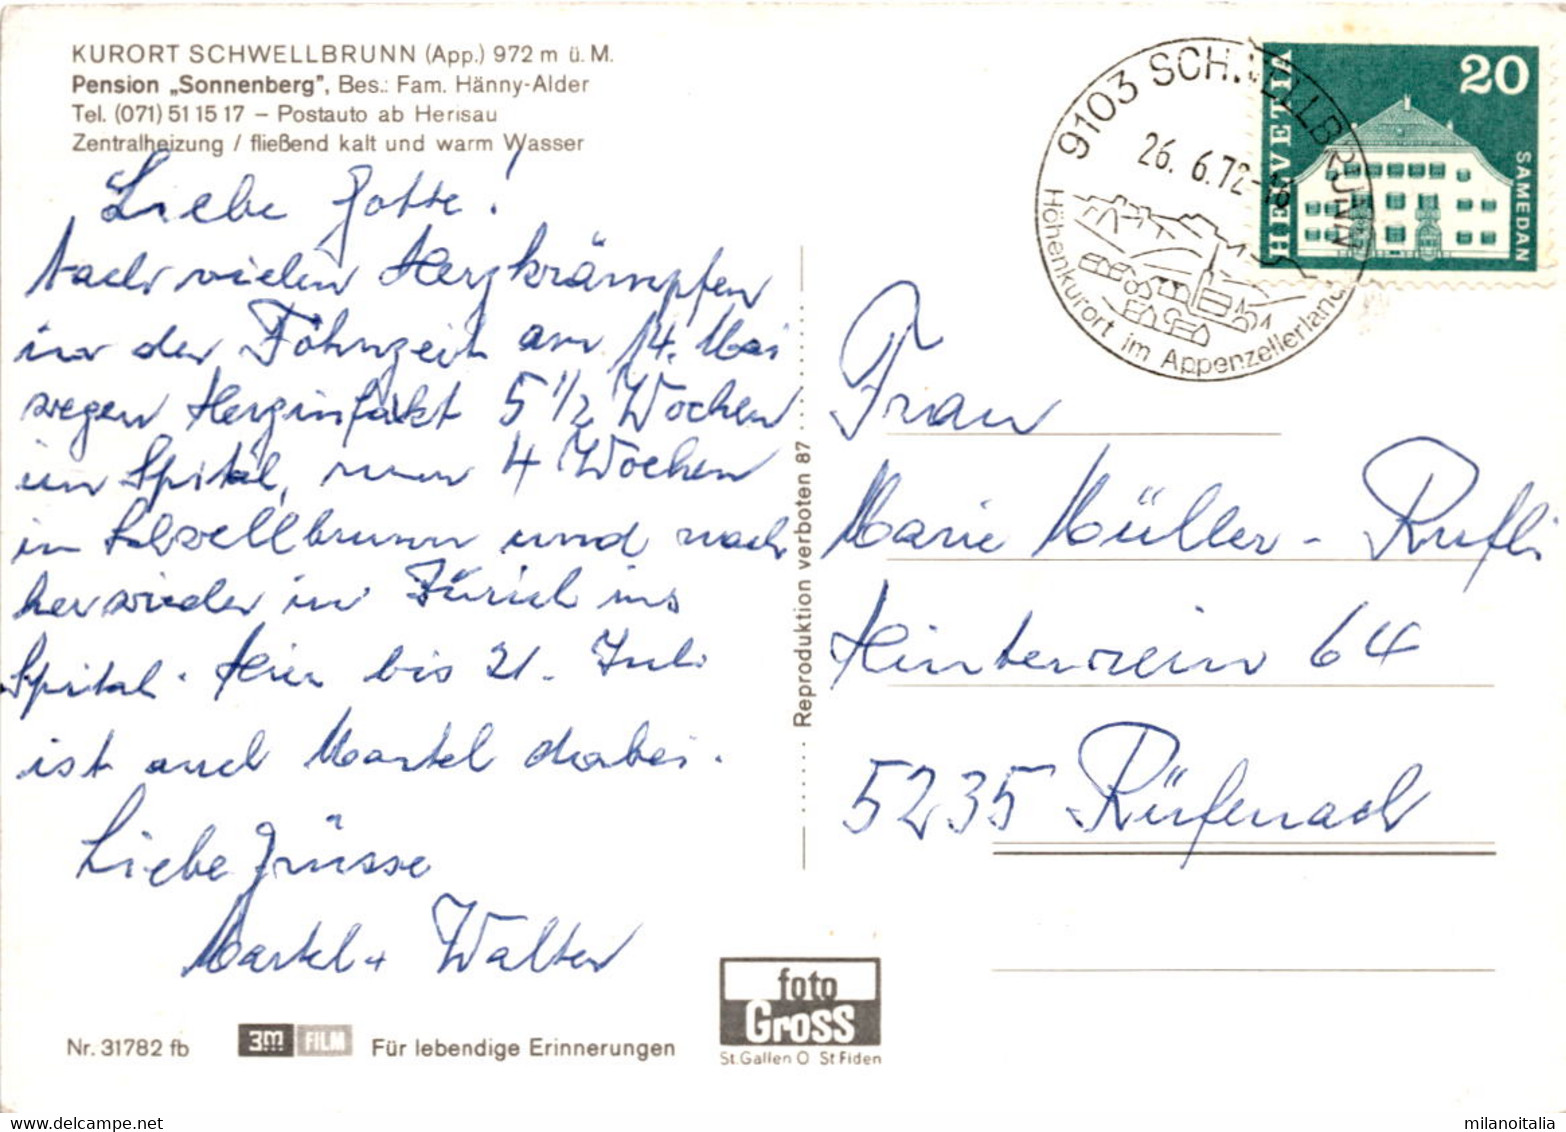 KURORT SCHWELLBRUNN (App.) 972 m ü. M.
Pension „Sonnenberg", Bes.: Fam. Hänny-Alder
Tel. (071) 51 15 17 – Postauto ab Herisau
Zentralheizung / fließend kalt und warm Wasser
Liebe Gotte!
Nach vielen Herzkrämpfen
in der Föhnzeit am 14. Mai
wegen Herzinfarkt 5 1/2 Wochen
im Spital, nun 4 Wochen
in Schwellbrunn und nach
her wieder in Zürich ins
Spital. Hier bis 21. Juli
ist auch Martel dabei.
Liebe Grüsse
Martel + Walter
Nr. 31782 fb
3m FILM
Für lebendige Erinnerungen
foto
Gross
St.Gallen O St Fiden
Reproduktion verboten 87
9103 SCHWELLBRUNN
26. 6.72-18
Höhenkurort im Appenzellerland
HELVETIA
20
SAMEDAN
Frau
Marie Müller - Rufli
Hinterrein 64
5235 Rüfenach
milanoitalia